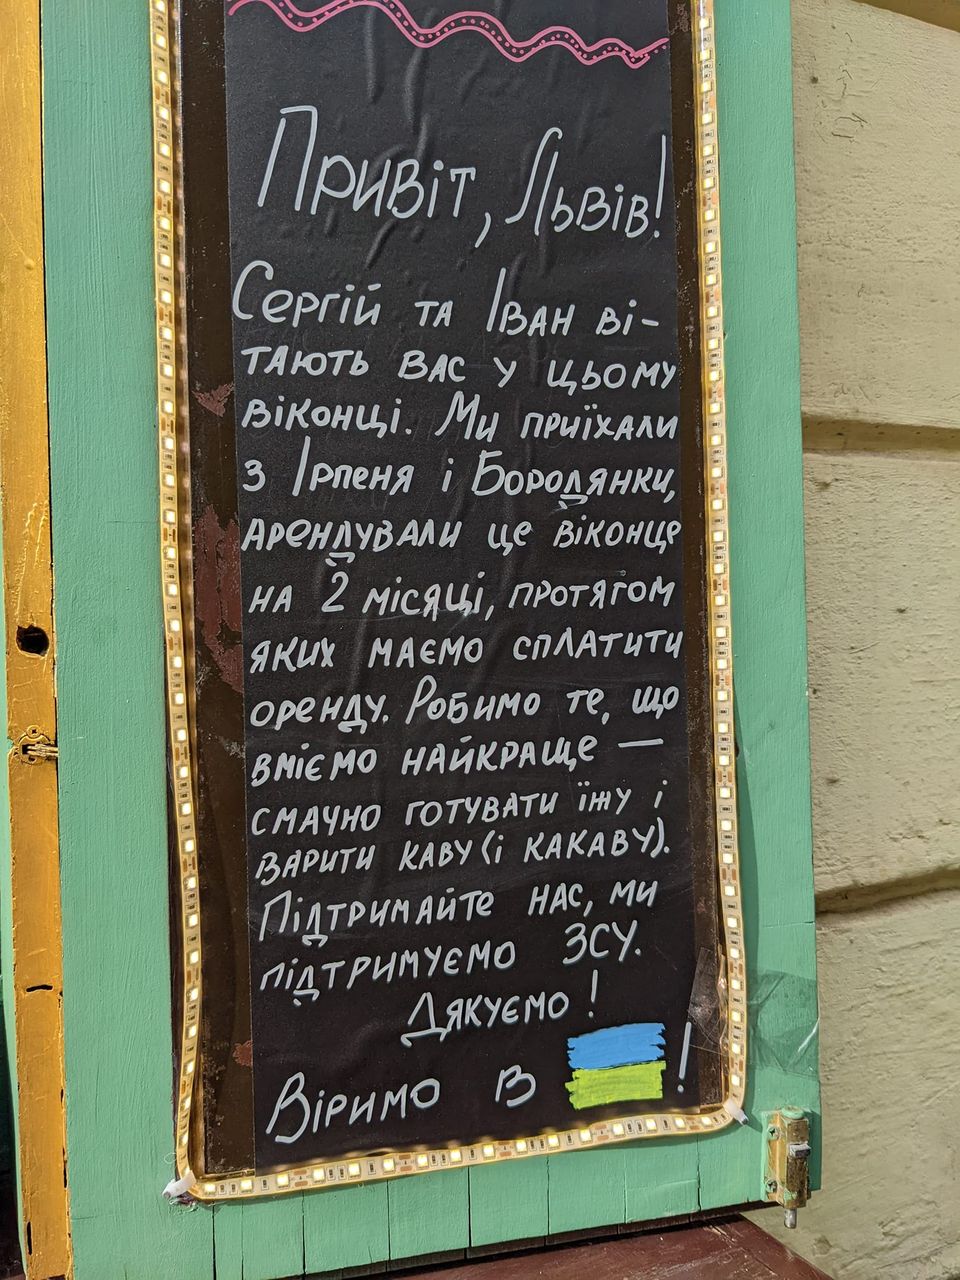 Привіт, Львів!
Сергій та Іван ві-
тають вас у цьому
віконці. Ми приїхали
з Ірпеня і Бородянки,
арендували це віконце
на 2 місяці, протягом
яких маємо сплатити
оренду. Робимо те, що
вміємо найкраще —
смачно готувати їжу і
варити каву (і какаву).
Підтримайте нас, ми
підтримуємо ЗСУ.
Дякуємо!
Віримо в !